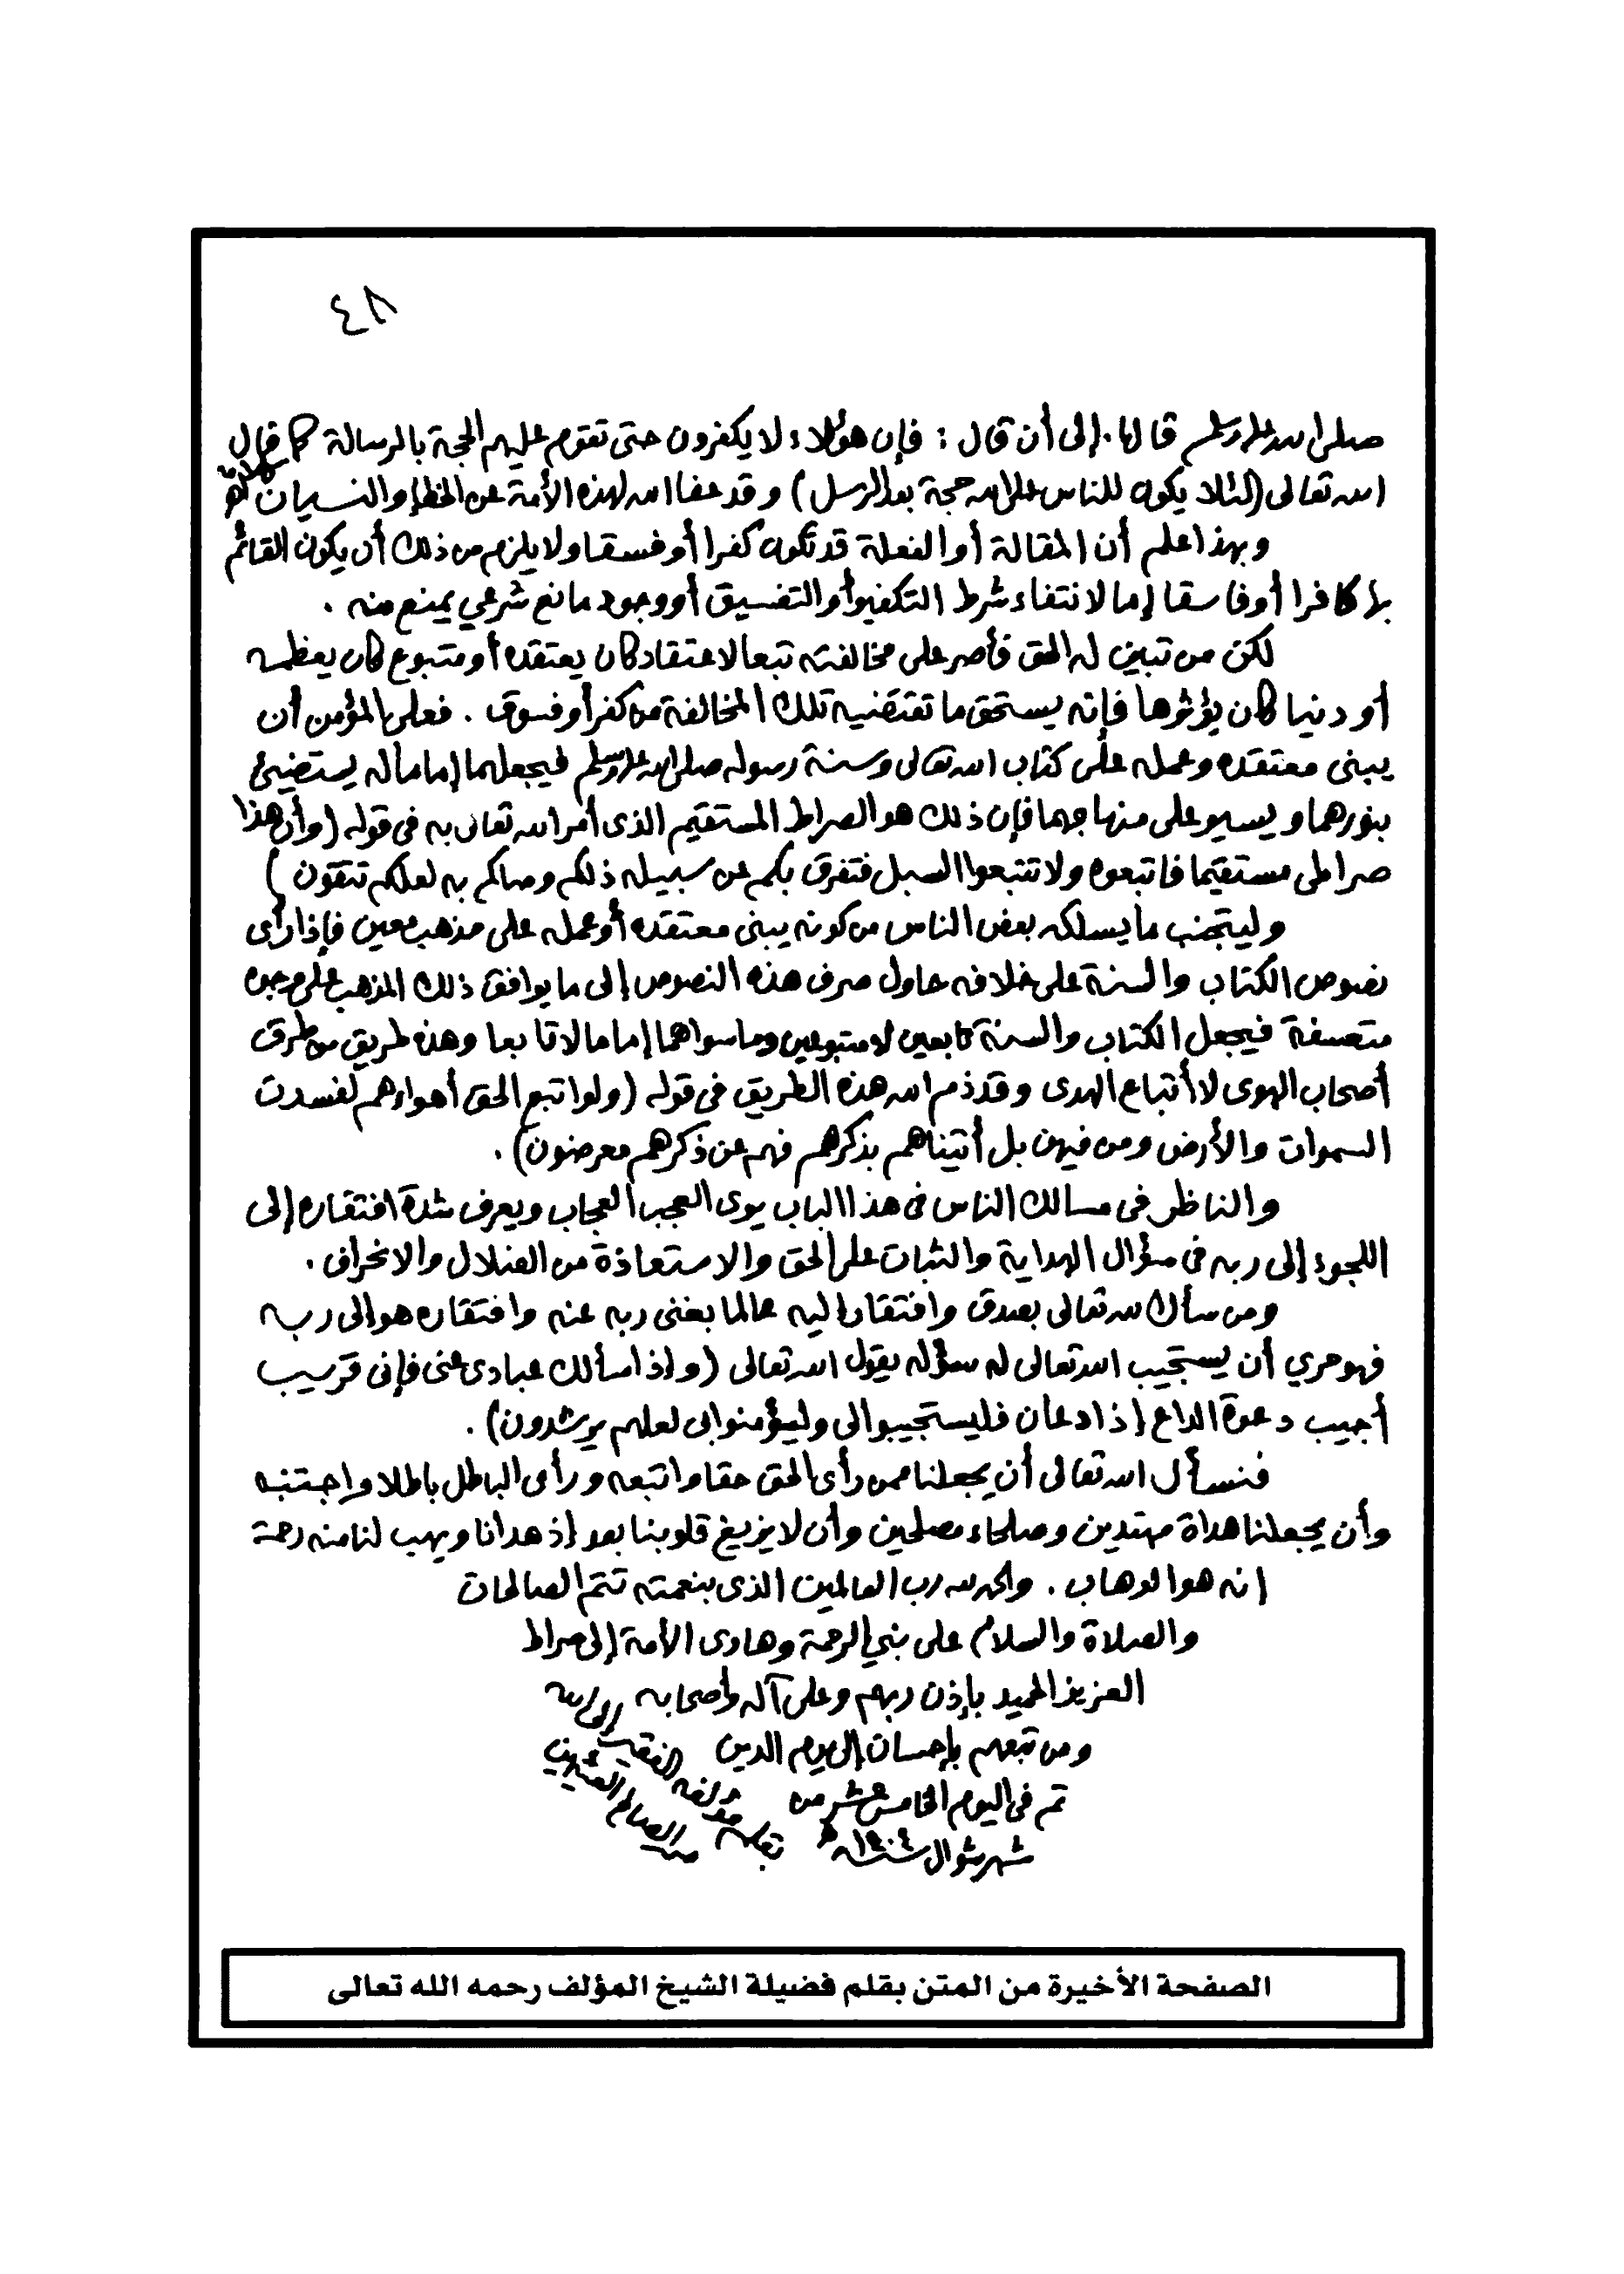 ٤٨
صلى الله عليه وسلم قالها. إلى أن قال : فإن هؤلاء لا يكفرون حتى تقوم عليهم الحجة بالرسالة كما قال
الله تعالى (لئلا يكون للناس على الله حجة بعد الرسل) وقد عفا الله لهذه الأمة عن الخطإ والنسيان اهـ كلامه
وبهذا علم أن المقالة أو الفعلة قد تكون كفرا أو فسقا ولا يلزم من ذلك أن يكون القائم
بها كافرا أو فاسقا إما لانتفاء شرط التكفير أو التفسيق أو وجود مانع شرعي يمنع منه .
لكن من تبين له الحق فأصر على مخالفته تبعا لاعتقاد كان يعتقده أو متبوع كان يعظمه
أو دنيا كان يؤثرها فإنه يستحق ما تقتضيه تلك المخالفة من كفر أو فسوق . فعلى المؤمن أن
يبنى معتقده وعمله على كتاب الله تعالى وسنة رسوله صلى الله عليه وسلم فيجعلهما إماما له يستضيئ
بنورهما ويسير على منهاجهما فإن ذلك هو الصراط المستقيم الذى أمر الله تعالى به فى قوله (وأن هذا
صراطى مستقيما فاتبعوه ولا تتبعوا السبل فتفرق بكم عن سبيله ذلكم وصاكم به لعلكم تتقون )
وليتجنب ما يسلكه بعض الناس من كونه يبنى معتقده أو عمله على مذهب معين فإذا رأى
نصوص الكتاب والسنة على خلافه حاول صرف هذه النصوص إلى ما يوافق ذلك المذهب على وجوه
متعسفة فيجعل الكتاب والسنة تابعين لا متبوعين وما سواهما إماما لا تابعا وهذه طريق من طرق
أصحاب الهوى لا أتباع الهدى وقد ذم الله هذه الطريق فى قوله (ولو اتبع الحق أهواءهم لفسدت
السموات والأرض ومن فيهن بل أتيناهم بذكرهم فهم عن ذكرهم معرضون) .
والناظر فى مسالك الناس فى هذا الباب يرى العجب العجاب ويعرف شدة افتقاره إلى
اللجوء إلى ربه فى سؤال الهداية والثبات على الحق والاستعاذة من الضلال والانحراف .
ومن سأل الله تعالى بصدق وافتقار إليه عالما بغنى ربه عنه وافتقاره هو إلى ربه
فهو حري أن يستجيب الله تعالى له سؤله يقول الله تعالى (وإذا سألك عبادى عنى فإنى قريب
أجيب دعوة الداع إذا دعان فليستجيبوا لى وليؤمنوا بى لعلهم يرشدون) .
فنسأل الله تعالى أن يجعلنا ممن رأى الحق حقا واتبعه ورأى الباطل باطلا واجتنبه
وأن يجعلنا هداة مهتدين وصلحاء مصلحين وأن لا يزيغ قلوبنا بعد إذ هدانا ويهب لنا منه رحمة
انه هو الوهاب . والحمد لله رب العالمين الذى بنعمته تتم الصالحات
والصلاة والسلام على نبي الرحمة وهادى الأمة إلى صراط
العزيز الحميد بإذن ربهم وعلى آله وأصحابه
ومن تبعهم بإحسان إلى يوم الدين
تم فى اليوم الخامس عشر من
شهر شوال سنة ١٤٠٤هـ
بقلم مؤلفه الفقير إلى الله
محمد الصالح العثيمين
الصفحة الأخيرة من المتن بقلم فضيلة الشيخ المؤلف رحمه الله تعالى